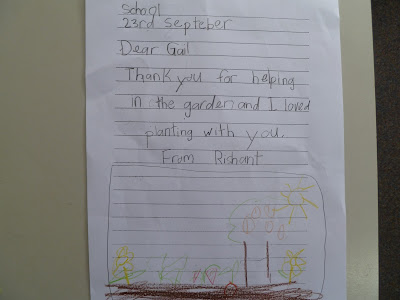 School
23rd Septeber
Dear Gail
Thank you for helping
in the garden and I loved
planting with you.
From Rishant